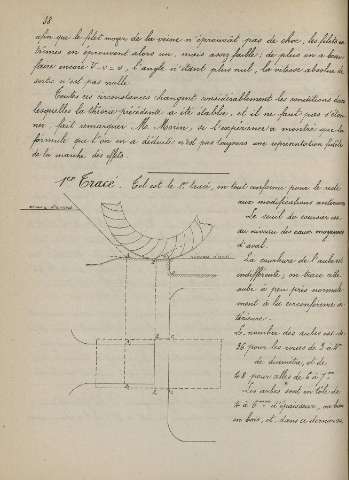 38
afin que le filet moyen de la veine n'éprouvât pas de choc, les filets ex-
trêmes en éprouvent alors un, mais assez faible; de plus on a beau
faire encore V = u, l'angle n'étant plus nul, la vitesse absolue de
sortie n'est pas nulle.
Toutes ces circonstances changent considérablement les conditions dans
lesquelles la théorie précédente a été établie, et il ne faut pas s'éton-
ner, fait remarquer Mr. Morin, si l'expérience a montré que la
formule que l'on en a déduit n'est pas toujours une représentation fidèle
de la marche des effets.
1er Tracé. Tel est le 1er tracé, en tout conforme pour le reste
aux modifications
Le seuil du coursier est
au niveau des eaux moyennes
d'aval.
La courbure de l'aube est
indifférente; on trace cette
aube à peu près normale-
ment à la circonférence ex-
térieure.
Le nombre des aubes est de
36 pour les roues de 3 à 4m
de diamètre, et de
48 pour celles de 6 à 7m
Les aubes sont en tôle de
4 à 6mm d'épaisseur, ou bien
en bois, et, dans ce dernier cas,
niveau d'amont
niveau d'aval